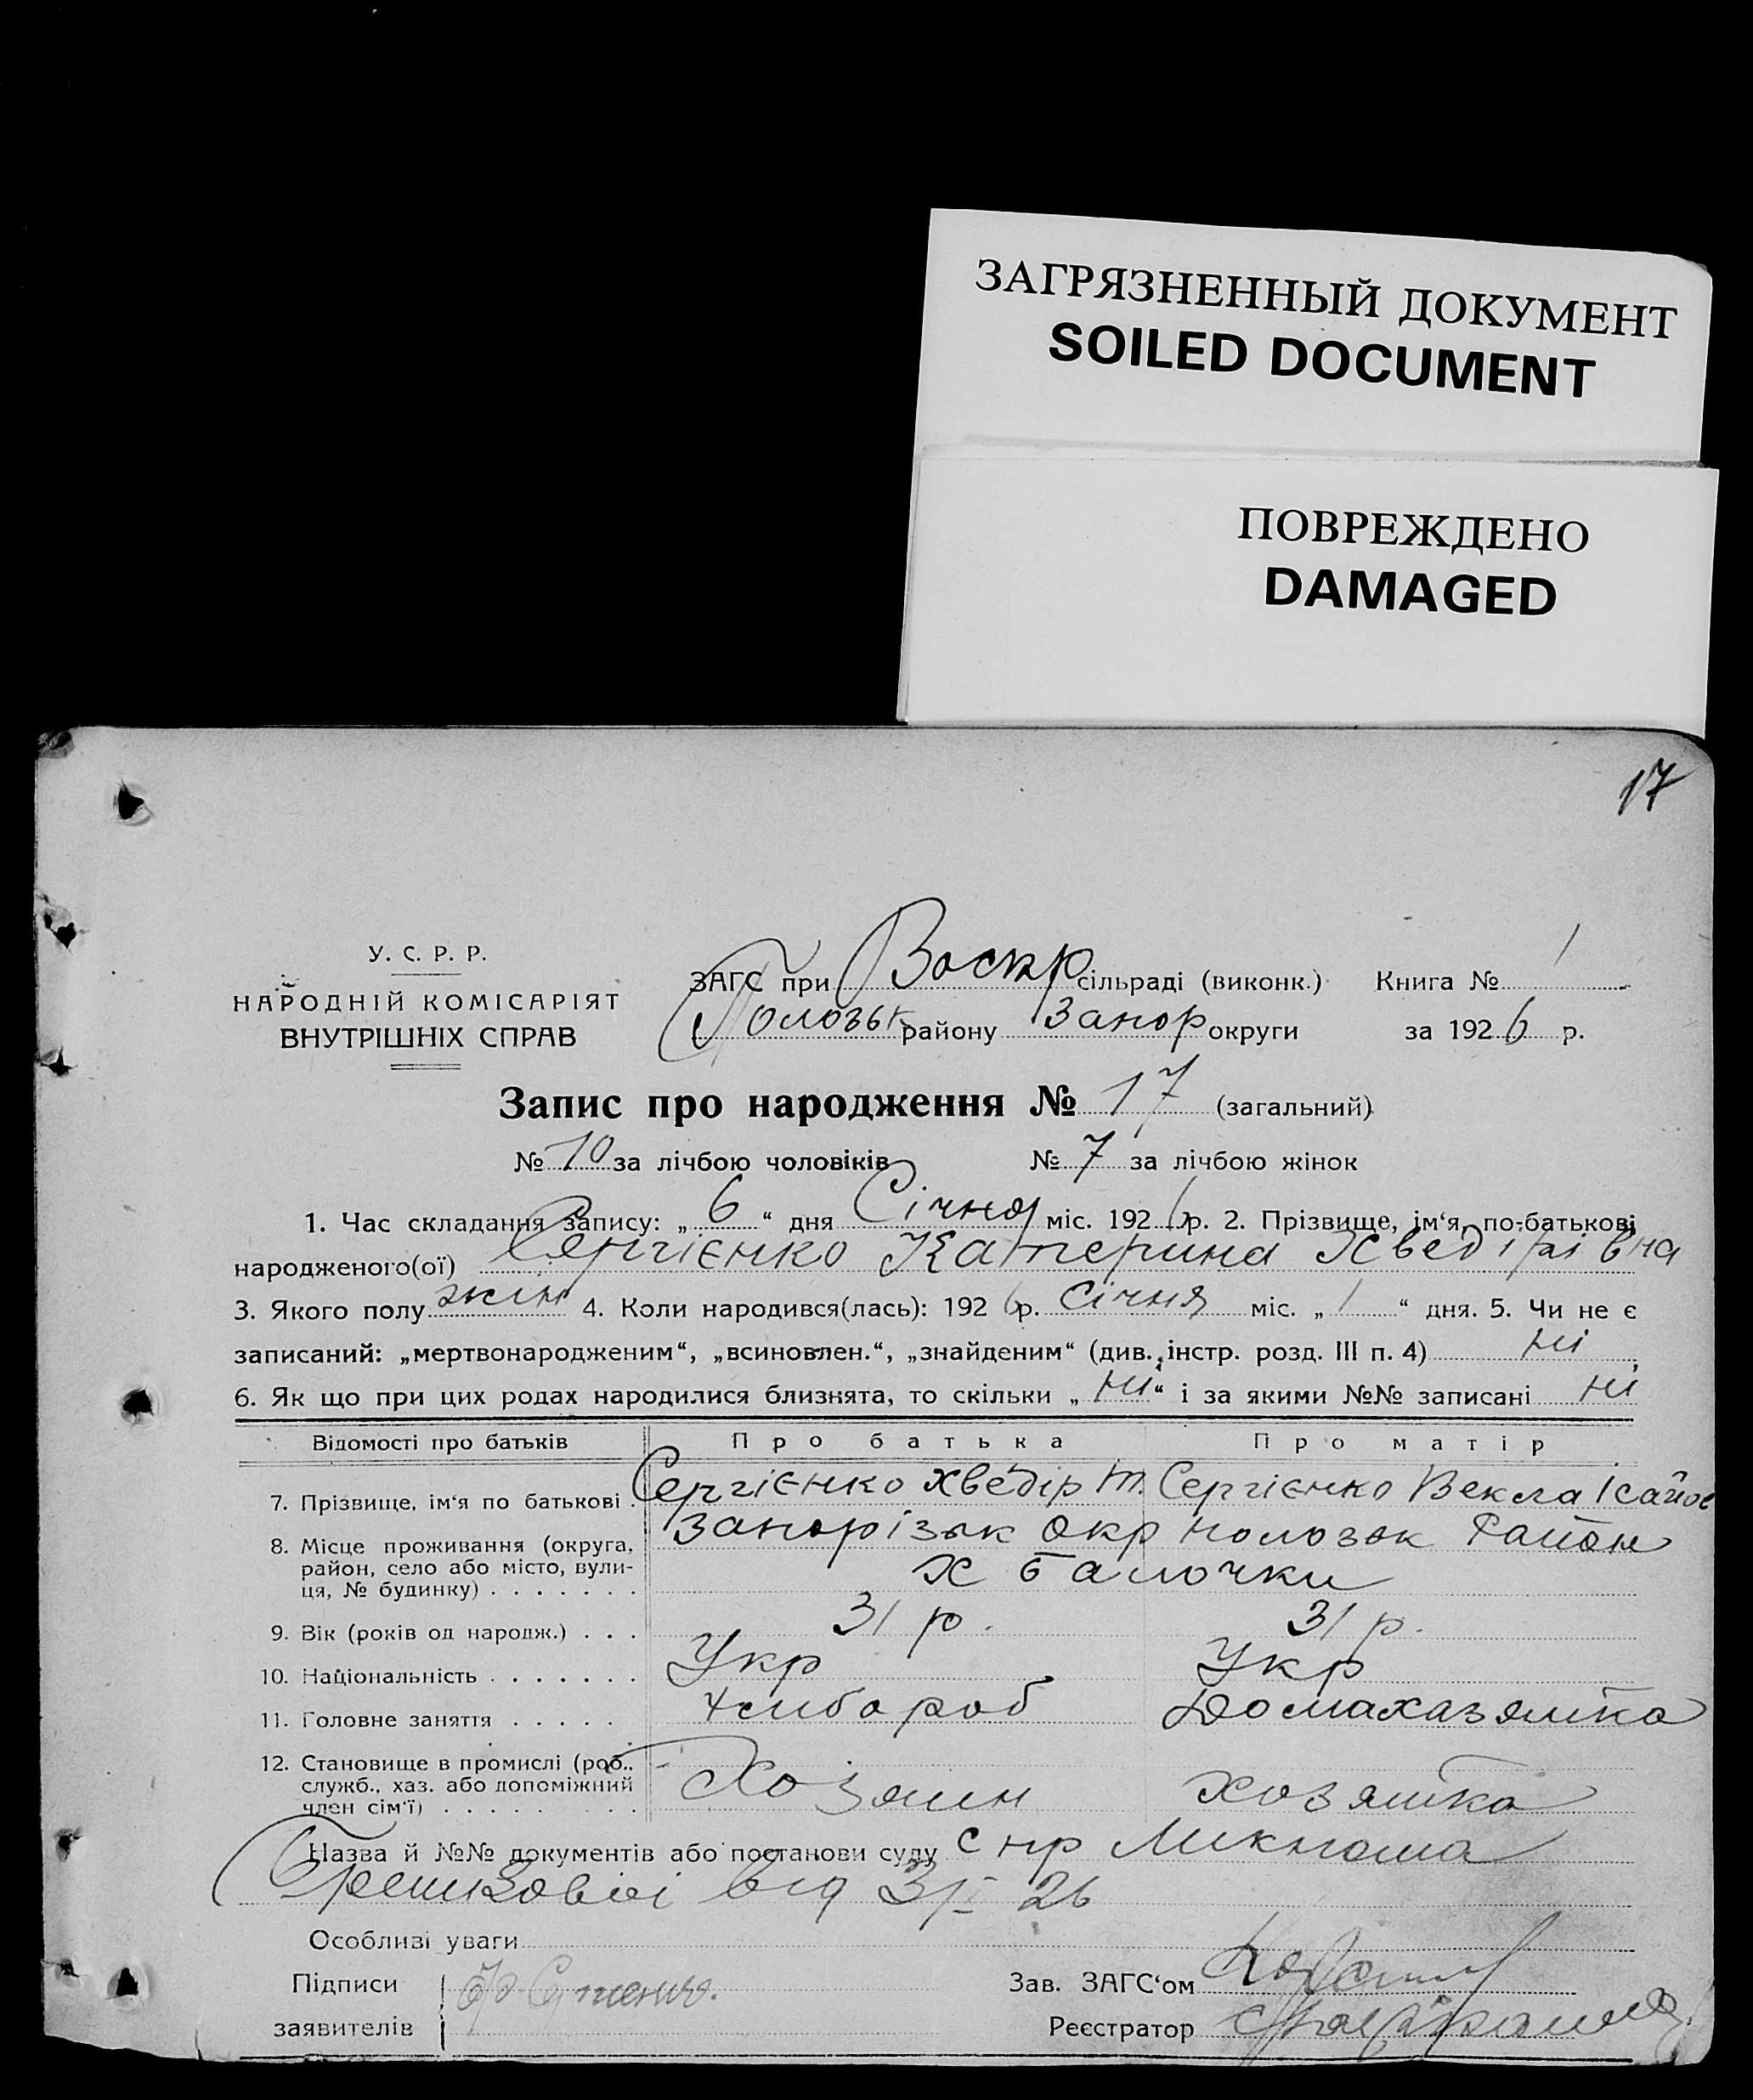 ЗАГРЯЗНЕННЫЙ ДОКУМЕНТ
SOILED DOCUMENT
ПОВРЕЖДЕНО
DAMAGED
17
У. С. Р. Р.
НАРОДНІЙ КОМІСАРІЯТ
ВНУТРІШНІХ СПРАВ
ЗАГС при Воскр сільраді (виконк.) Книга № 1
Пологськ району Запор округи за 1926 р.
Запис про народження № 17 (загальний)
№ 10 за лічбою чоловіків № 7 за лічбою жінок
1. Час складання запису: „6“ дня Січня міс. 1926 р. 2. Прізвище, ім‘я, по-батькові
народженого(ої) Сергієнко Катерина Хведірівна
3. Якого полу жін 4. Коли народився(лась): 1926 р. Січня міс. „1“ дня. 5. Чи не є
записаний: „мертвонародженим“, „всиновлен.“, „знайденим“ (див. інстр. розд. III п. 4) ні
6. Як що при цих родах народилися близнята, то скільки „ні“ і за якими №№ записані ні
Відомості про батьків Про батька Про матір
7. Прізвище, ім‘я по батькові . Сергієнко Хведір Т. Сергієнко Векла Ісайов
8. Місце проживання (округа, район, село або місто, вули-ця, № будинку) . . . . . . . Запорізьк Окр пологзк Район
х Балочки
9. Вік (років од народж.) . . . 31 р. 31 р.
10. Національність . . . . . . . Укр Укр
11. Головне заняття . . . . . Хлібороб Домахазяйка
12. Становище в промислі (роб., служб., хаз. або допоміжний член сім‘ї) . . . . . . . Хозяин хозяйка
Назва й №№ документів або постанови суду С пр
від 3/I 26
Особливі уваги
Підписи
заявителів
Зав. ЗАГС‘ом
Реєстратор